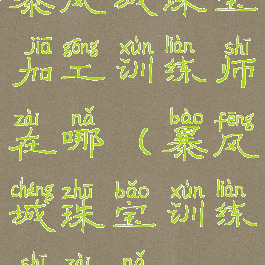 暴风城珠宝
jiā gōng xùn liàn shī
加工训练师
zài nǎ bào fēng
在哪(暴风
chéng zhū bǎo xùn liàn
城珠宝训练
shī zài nǎ